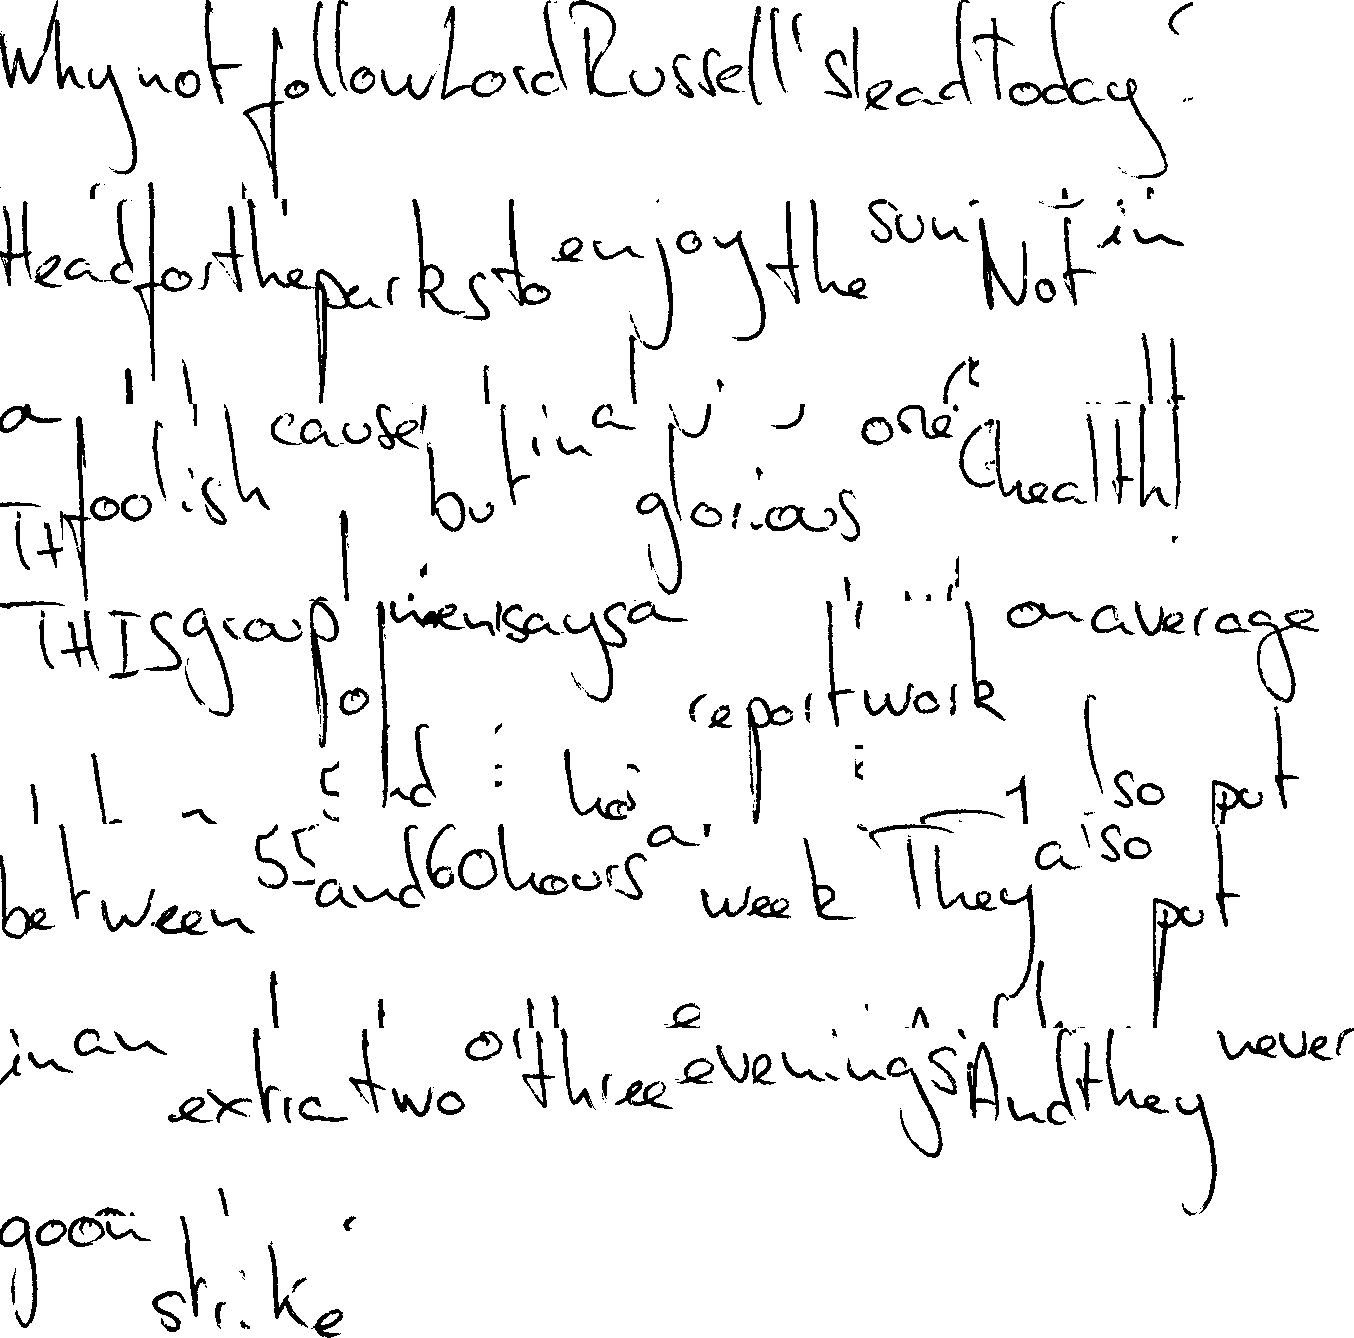 Why not follow Lord Russell's lead today?
Head for the parks to enjoy the sun. Not in
a foolish cause but in a glorious one (health!
THIS group of men says a report work on average
between 55 and 60 hours a week. They also put
in an extra two or three evenings. And they never
go on strike